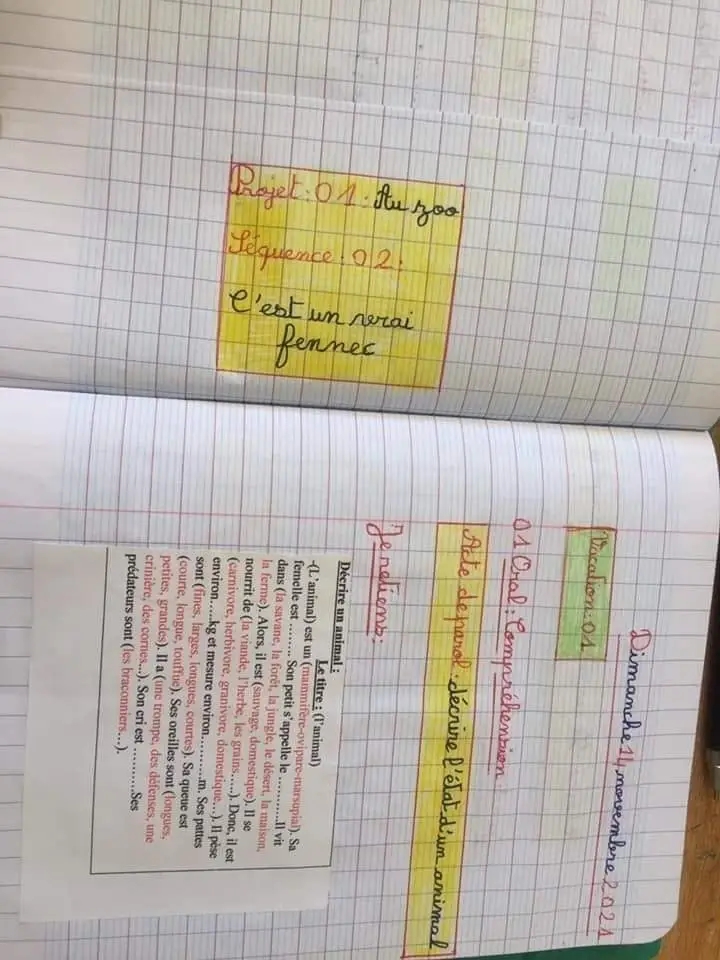 Projet : 01 : Au zoo
Séquence : 02 :
C'est un vrai
fennec
Dimanche 14 novembre 2021
Vacation : 01
01 Oral : Compréhension
Acte de parol : décrire l'état d'un animal
Je retiens :
Décrire un animal :
Le titre : (l'animal)
-(L'animal) est un (mammifère-ovipare-marsupial). Sa
femelle est ......... Son petit s'appelle le ............Il vit
dans (la savane, la forêt, la jungle, le désert, la maison,
la ferme). Alors, il est (sauvage, domestique). Il se
nourrit de (la viande, l'herbe, les grains.....). Donc, il est
(carnivore, herbivore, granivore, domestique...). Il pèse
environ.....kg et mesure environ............m. Ses pattes
sont (fines, larges, longues, courtes). Sa queue est
(courte, longue, touffue). Ses oreilles sont (longues,
petites, grandes). Il a (une trompe, des défenses, une
crinière, des cornes...). Son cri est ...........Ses
prédateurs sont (les braconniers...).